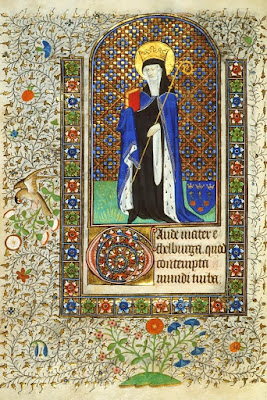 Gaude mater e
thelburga quod
contempta
mundi turba